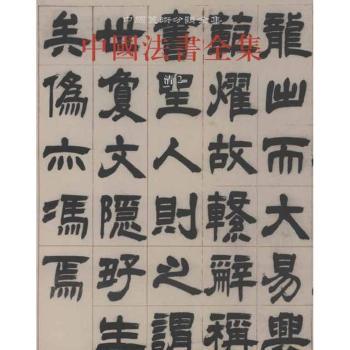 中國美術分類全集
中國法書全集
清2
龍出而大易興
範燿故繫辭稱
書聖人則之謂
世夐文隱好生
矣偽亦馮焉